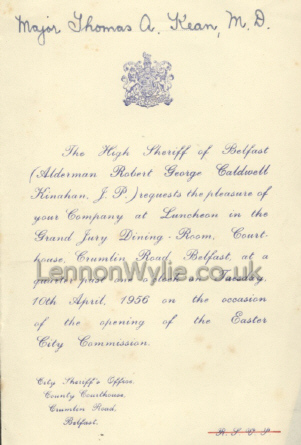 Major Thomas A. Kean, M.D.
The High Sheriff of Belfast
(Alderman Robert George Caldwell
Kinahan, J.P.) requests the pleasure of
your Company at Luncheon in the
Grand Jury Dining-Room, Court-
house, Crumlin Road, Belfast, at a
quarter past one o'clock on Tuesday,
LennonWylie.co.uk
10th April, 1956 on the occasion
of the opening of the Easter
City Commission.
City Sheriff's Office,
County Courthouse,
Crumlin Road,
Belfast.
R.S.V.P.